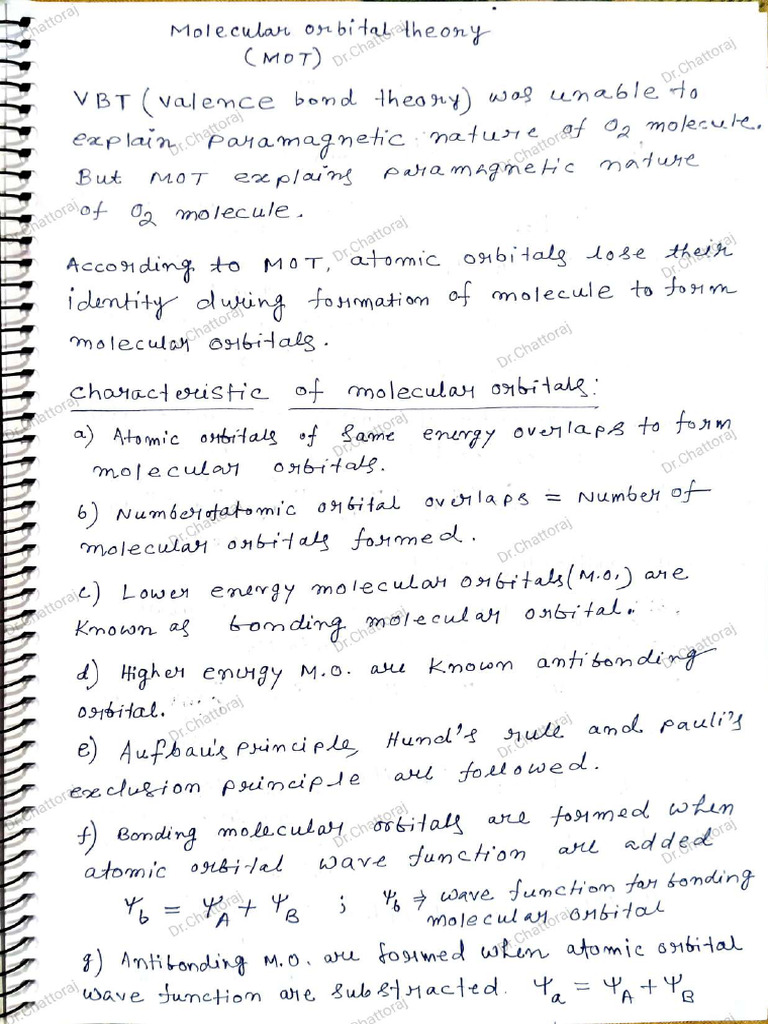 Molecular orbital theory
(MOT)
VBT (valence bond theory) was unable to
explain paramagnetic nature of O2 molecule.
But MOT explains paramagnetic nature
of O2 molecule.
According to MOT, atomic orbitals lose their
identity during formation of molecule to form
molecular orbitals.
Characteristic of molecular orbitals:
a) Atomic orbitals of same energy overlaps to form
molecular orbitals.
b) Number of atomic orbital overlaps = Number of
molecular orbitals formed.
c) Lower energy molecular orbitals (M.O.) are
Known as bonding molecular orbital.
d) Higher energy M.O. are Known antibonding
orbital.
e) Aufbau's principle, Hund's rule and pauli's
exclusion principle are followed.
f) Bonding molecular orbitals are formed when
atomic orbital wave function are added
Ψb = ΨA + ΨB ; Ψb ⇒ wave function for bonding
molecular orbital
g) Antibonding M.O. are formed when atomic orbital
wave function are substracted. Ψa = ΨA + ΨB
Dr.Chattoraj